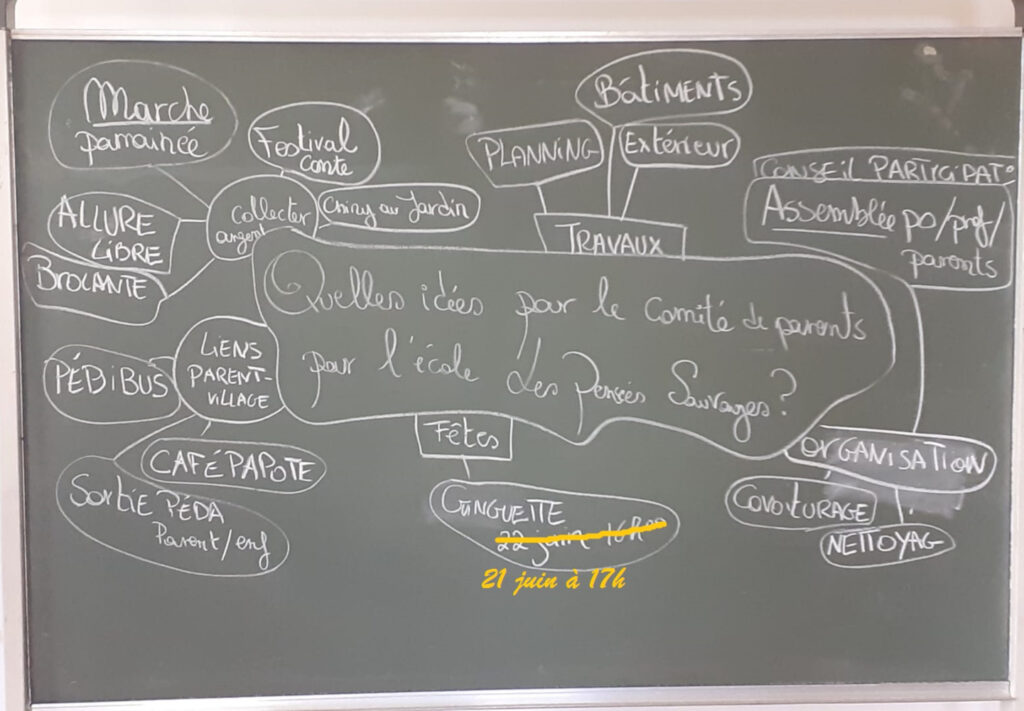 Marche
parrainée
Festival
Conte
ALLURE
LIBRE
collecter
argent
au Jardin
BROCANTE
PLANNING
BâtiMENTS
Extérieur
TRAVAUX
CONSEIL PARTICIPATo
Assemblée po/prof/
parents
Quelles idées pour le Comité de parents
pour l'école Les Pensées Sauvages?
LiENS
PARENT-
ViLLAGE
PÉDiBUS
CAFÉ PAPOTE
Sortie PÉDA
Parent/enf
Fêtes
GUINGUETTE
22 juin 16h00
21 juin à 17h
ORGANISATION
COVOITURAGE
NETTOYAG